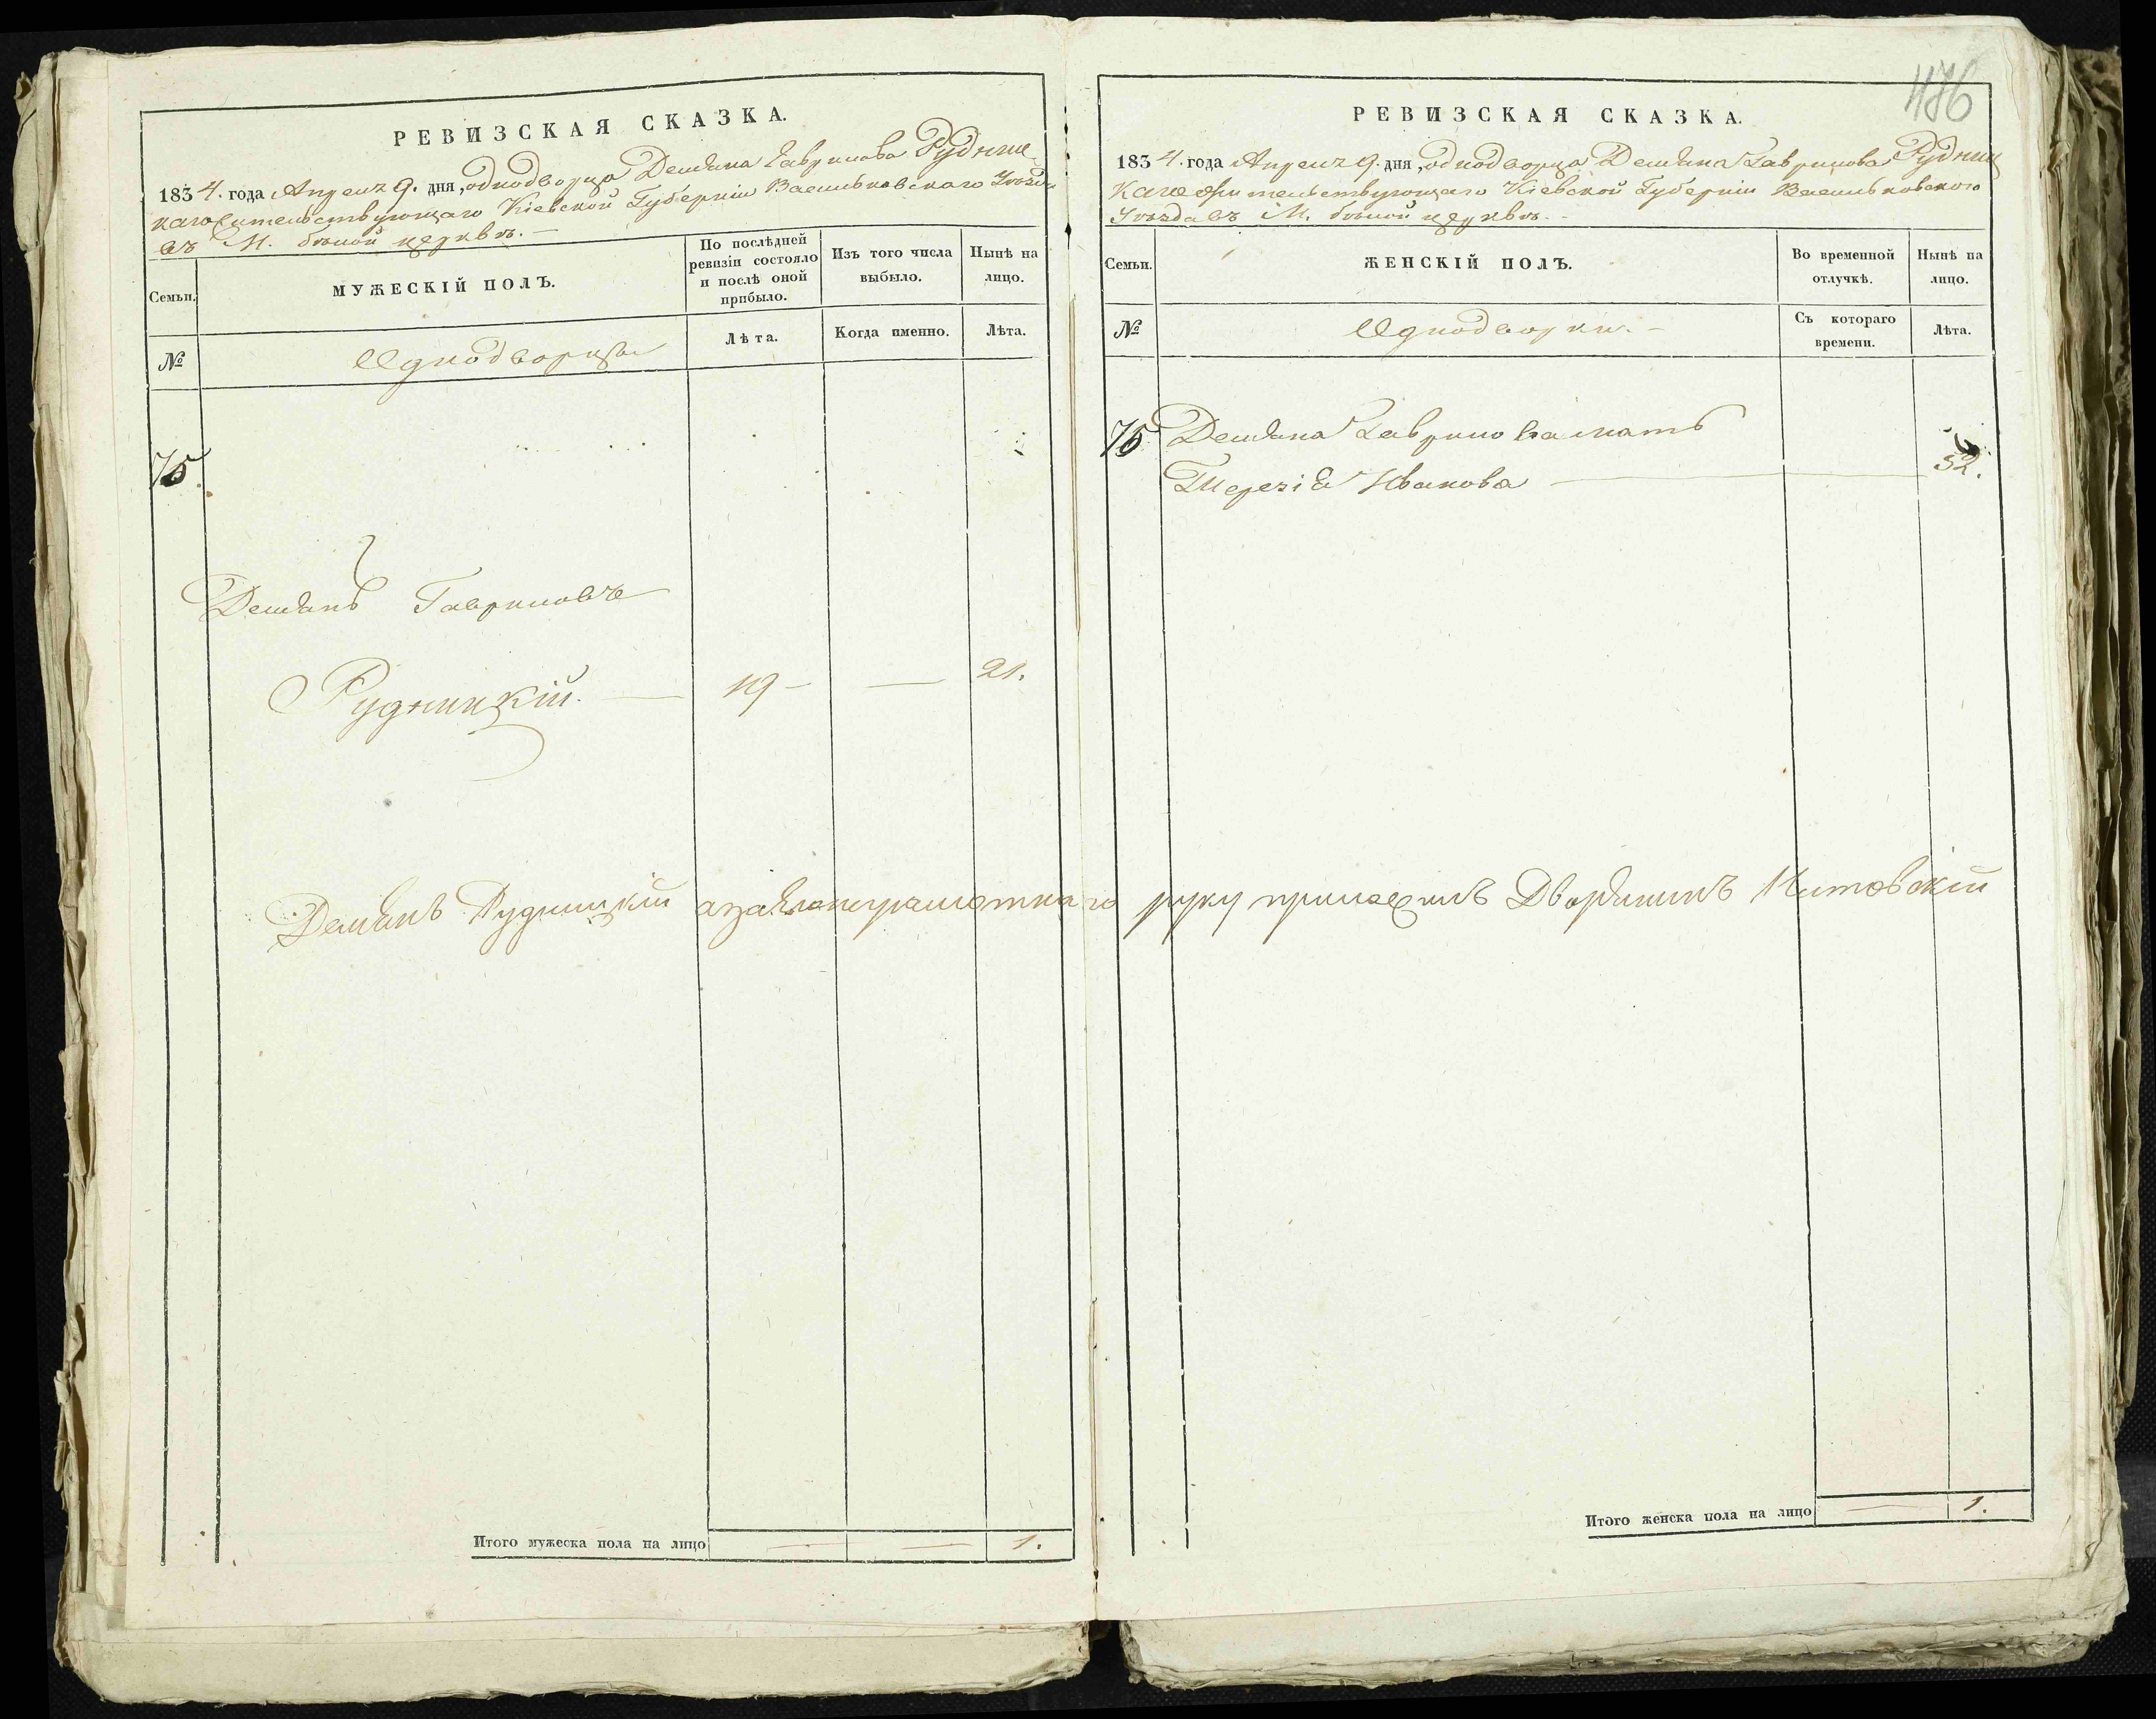 РЕВИЗСКАЯ СКАЗКА.
1834. года Апреля 9. дня, однодворца Демяна Гаврилова Рудниц-
каго жительствующаго Кіевской Губерніи Васильковскаго Уѣзда
въ М. бѣлой церквѣ. —
Семьи.
МУЖЕСКІЙ ПОЛЪ.
По послѣдней ревизіи состояло и послѣ оной прибыло.
Изъ того числа выбыло.
Нынѣ на лицо.
№
Однодворцы
Лѣта.
Когда именно.
Лѣта.
75
Демянъ Гавриловъ
Рудницкій. — 19 — — 21.
Итого мужеска пола на лицо — — 1.
486
РЕВИЗСКАЯ СКАЗКА.
1834. года Апреля 9. дня, однодворца Демяна Гаврилова Рудниц
каго жительствующаго Кіевской Губерніи Васильковского
Уѣзда въ М. бѣлой церквѣ. -
Семьи.
ЖЕНСКІЙ ПОЛЪ.
Во временной отлучкѣ.
Нынѣ на лицо.
№
Однодворки. —
Съ котораго времени.
Лѣта.
75 Демяна Гаврилова мать
Терезія Иванова — 52.
Демянъ Рудницкій а за его неграмотнаго руку приложилъ Дворянинъ
Итого женска пола на лицо — 1.